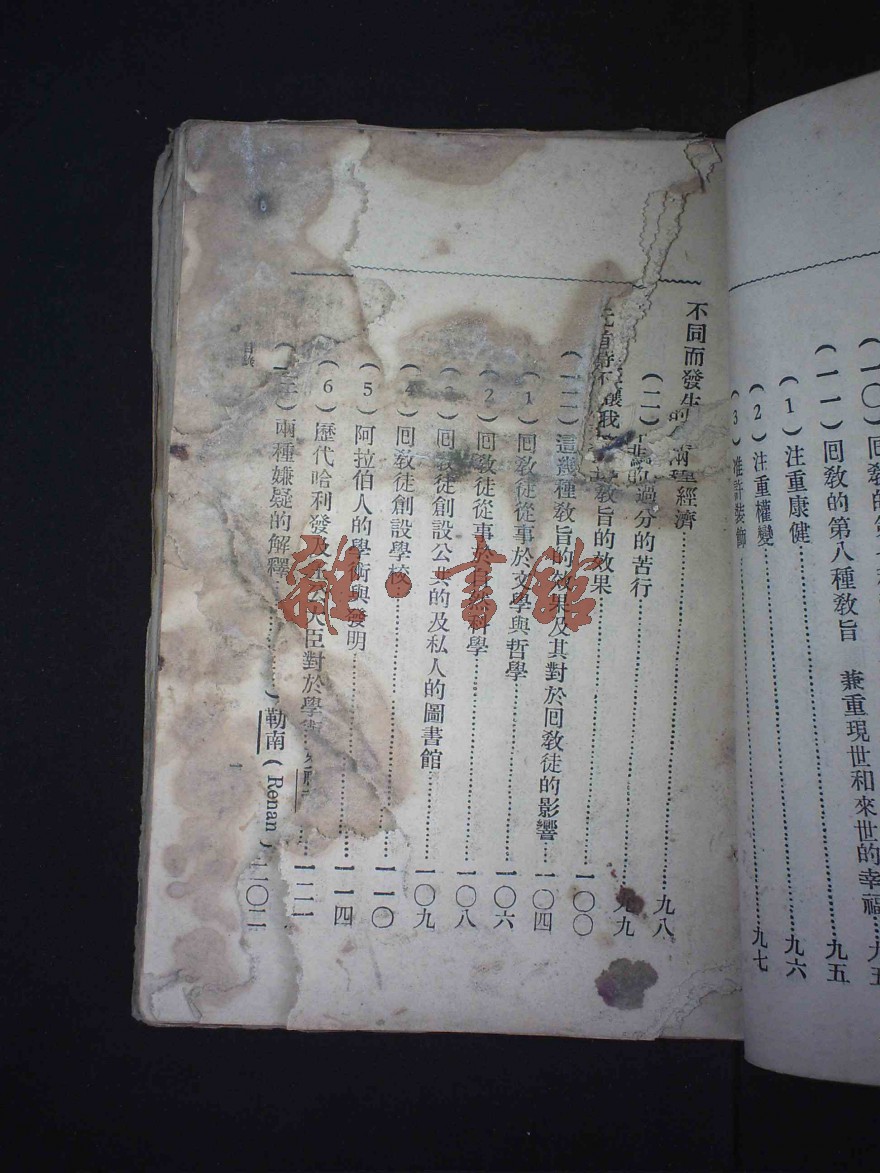 (一〇)回教的第
(一一)回教的第八種教旨　兼重現世和來世的幸福……九五
(1)注重康健……九六
(2)注重權變……九七
(3)准許裝飾
不同而發生的兩種經濟……九八
(二)過分的苦行……九九
教旨的效果……一〇〇
(一二)這幾種教旨的效果及其對於回教徒的影響……一〇四
(1)回教徒從事於文學與哲學……一〇六
(2)回教徒從事於自然科學……一〇八
(3)回教徒創設公共的及私人的圖書館……一〇九
(4)回教徒創設學校……一一〇
(5)阿拉伯人的學術與發明……一一四
(6)歷代哈利發及大臣對於學……一二一
兩種嫌疑的解釋……)勒南(Renan)一〇二
目錄
一
雜·書館